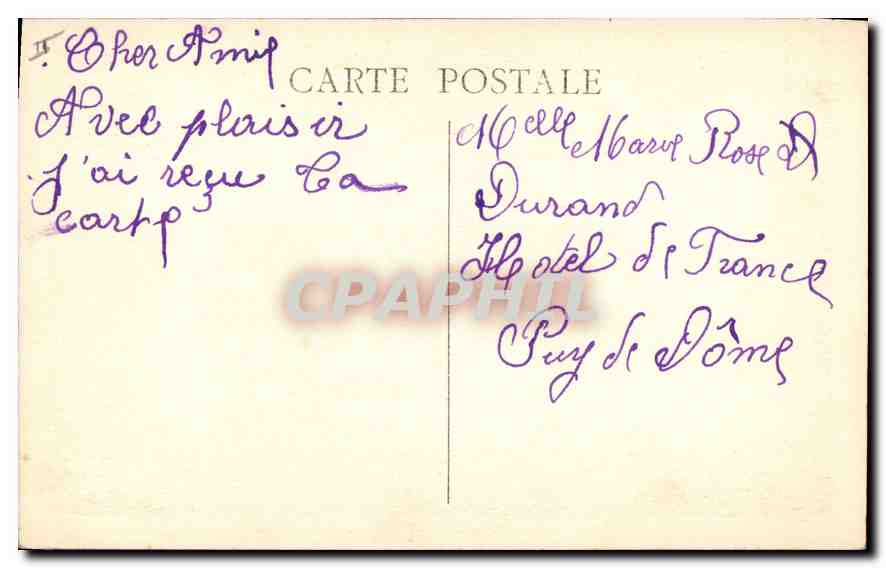 II
Cher Amie
CARTE POSTALE
Avec plaisir
J'ai reçue ta
carte
Melle Marie Rose
Durand
Hotel de France
Puy de Dôme
CPAPHIL